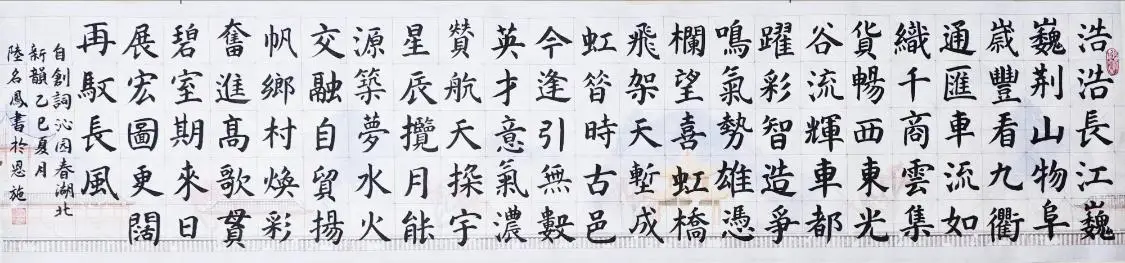 浩浩長江巍
巍荆山物阜
歲豐看九衢
通匯車流如
織千商雲集
貨暢西東光
谷流輝車都
躍彩智造爭
鳴氣勢雄憑
欄望喜虹橋
飛架天塹成
虹昝時古邑
今逢引無數
英才意氣濃
贊航天探宇
星辰攬月能
源築夢水火
交融自貿揚
帆鄉村焕彩
奮進髙歌貫
碧室期來日
展宏圖更闊
再馭長風
自創詞沁园春湖北
新韻乙巳夏月
陸名鳳書於恩施